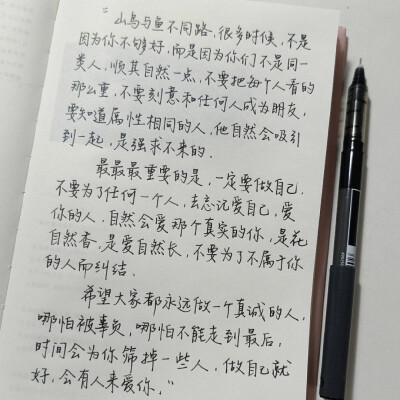 “山鸟与鱼不同路，很多时候，不是
因为你不够好，而是因为你们不是同一
类人，顺其自然一点，不要把每个人看的
那么重，不要刻意和任何人成为朋友，
要知道属性相同的人，他自然会吸引
到一起，是强求不来的．
最最最重要的是，一定要做自己．
不要为了任何一个人，去忘记爱自己，爱
你的人．自然会爱那个真实的你，是花
自然香，是爱自然长，不要为了不属于你
的人而纠结．
希望大家都永远做一个真诚的人，
哪怕被辜负，哪怕不能走到最后，
时间会为你筛掉一些人，做自己就
好，会有人来爱你．”